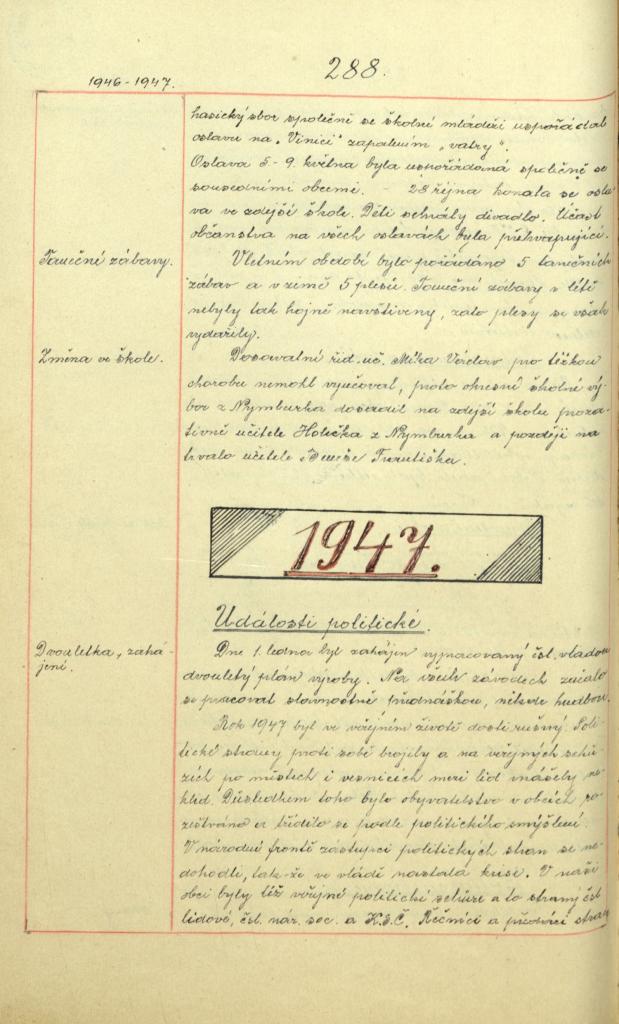 1946-1947.
288.
hasičský sbor společně se školní mládeží uspořádal
oslavu na „Vinici" zapálením „vatry".
Oslava 5 - 9. května byla uspořádaná společně se
sousedními obcemi. - 28 října konala se osla-
va ve zdejší škole. Děti sehrály divadlo. Účast
občanstva na všech oslavách byla překvapující.
Taneční zábavy.
V letním období bylo pořádáno 5 tanečních
zábav a v zimě 5 plesů. Taneční zábavy v létě
nebyly tak hojně navštíveny, zato plesy se však
vydařily.
Změna ve škole.
Dosavatní říd. uč. Míka Václav pro těžkou
chorobu nemohl vyučovat, proto okresní školní vý-
bor z Nymburka dosadil na zdejší školu proza-
tivně učitele Holečka z Nymburka a později na
trvalo učitele Františka.
1947.
Události politické.
Dvouletka, zahá-
jení.
Dne 1. ledna byl zahájen vypracovaný čsl. vládou
dvouletý plán výroby. Na všech závodech začalo
se pracovat slavnostně přednáškou, někde hudbou.
Rok 1947 byl ve veřejném životě dosti rušný. Poli-
tické strany proti sobě brojily a na veřejných schů-
zích po městech i vesnicích mezi lid vnášely ne-
klid. Důsledkem toho bylo obyvatelstvo v obcích ro-
zeštváno a třídilo se podle politického smýšlení.
V národní frontě zástupci politických stran se ne-
dohodli, tak-že ve vládě nastala krise. V naší
obci byly též veřejné politické schůze a to strany čsl.
lidové, čsl. nár. soc. a K.S.Č. Řečníci a předáci stran